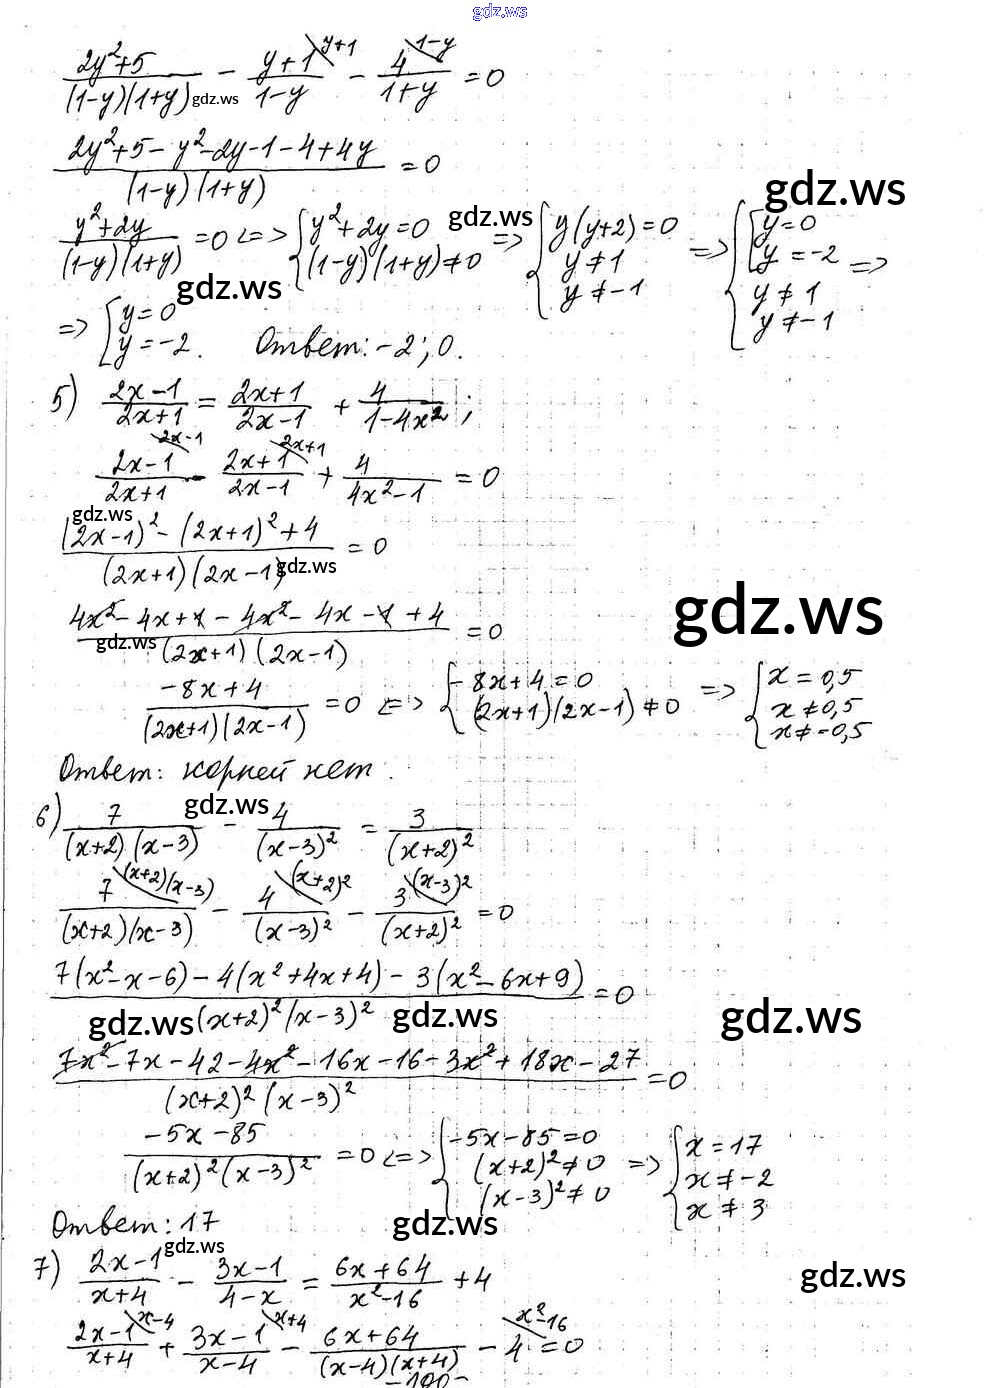 gdz.ws
(2y²+5)/((1-y)(1+y)) - (y+1)/(1-y) ^(y+1) - 4/(1+y) ^(1-y) = 0
gdz.ws
(2y²+5-y²-2y-1-4+4y)/((1-y)(1+y)) = 0
gdz.ws
(y²+2y)/((1-y)(1+y)) = 0 <=> { y²+2y=0; (1-y)(1+y)≠0 => { y(y+2)=0; y≠1; y≠-1 => { [ y=0; y=-2; y≠1; y≠-1 =>
gdz.ws
gdz.ws
=> [ y=0; y=-2. Ответ: -2; 0.
5) (2x-1)/(2x+1) = (2x+1)/(2x-1) + 4/(1-4x²);
(2x-1)/(2x+1) ^(2x-1) - (2x+1)/(2x-1) ^(2x+1) + 4/(4x²-1) = 0
gdz.ws
((2x-1)²-(2x+1)²+4)/((2x+1)(2x-1)) = 0
gdz.ws
(4x²-4x+1-4x²-4x-1+4)/((2x+1)(2x-1)) = 0
gdz.ws
gdz.ws
(-8x+4)/((2x+1)(2x-1)) = 0 <=> { -8x+4=0; (2x+1)(2x-1)≠0 => { x=0,5; x≠0,5; x≠-0,5
Ответ: корней нет.
gdz.ws
6) 7/((x+2)(x-3)) - 4/(x-3)² = 3/(x+2)²
7/((x+2)(x-3)) ^((x+2)(x-3)) - 4/(x-3)² ^((x+2)²) - 3/(x+2)² ^((x-3)²) = 0
(7(x²-x-6)-4(x²+4x+4)-3(x²-6x+9))/((x+2)²(x-3)²) = 0
gdz.ws gdz.ws gdz.ws
(7x²-7x-42-4x²-16x-16-3x²+18x-27)/((x+2)²(x-3)²) = 0
(-5x-85)/((x+2)²(x-3)²) = 0 <=> { -5x-85=0; (x+2)²≠0; (x-3)²≠0 => { x=17; x≠-2; x≠3
Ответ: 17
gdz.ws gdz.ws
7) (2x-1)/(x+4) - (3x-1)/(4-x) = (6x+64)/(x²-16) + 4
gdz.ws
(2x-1)/(x+4) ^(x-4) + (3x-1)/(x-4) ^(x+4) - (6x+64)/((x-4)(x+4)) - 4 ^(x²-16) = 0
-190-